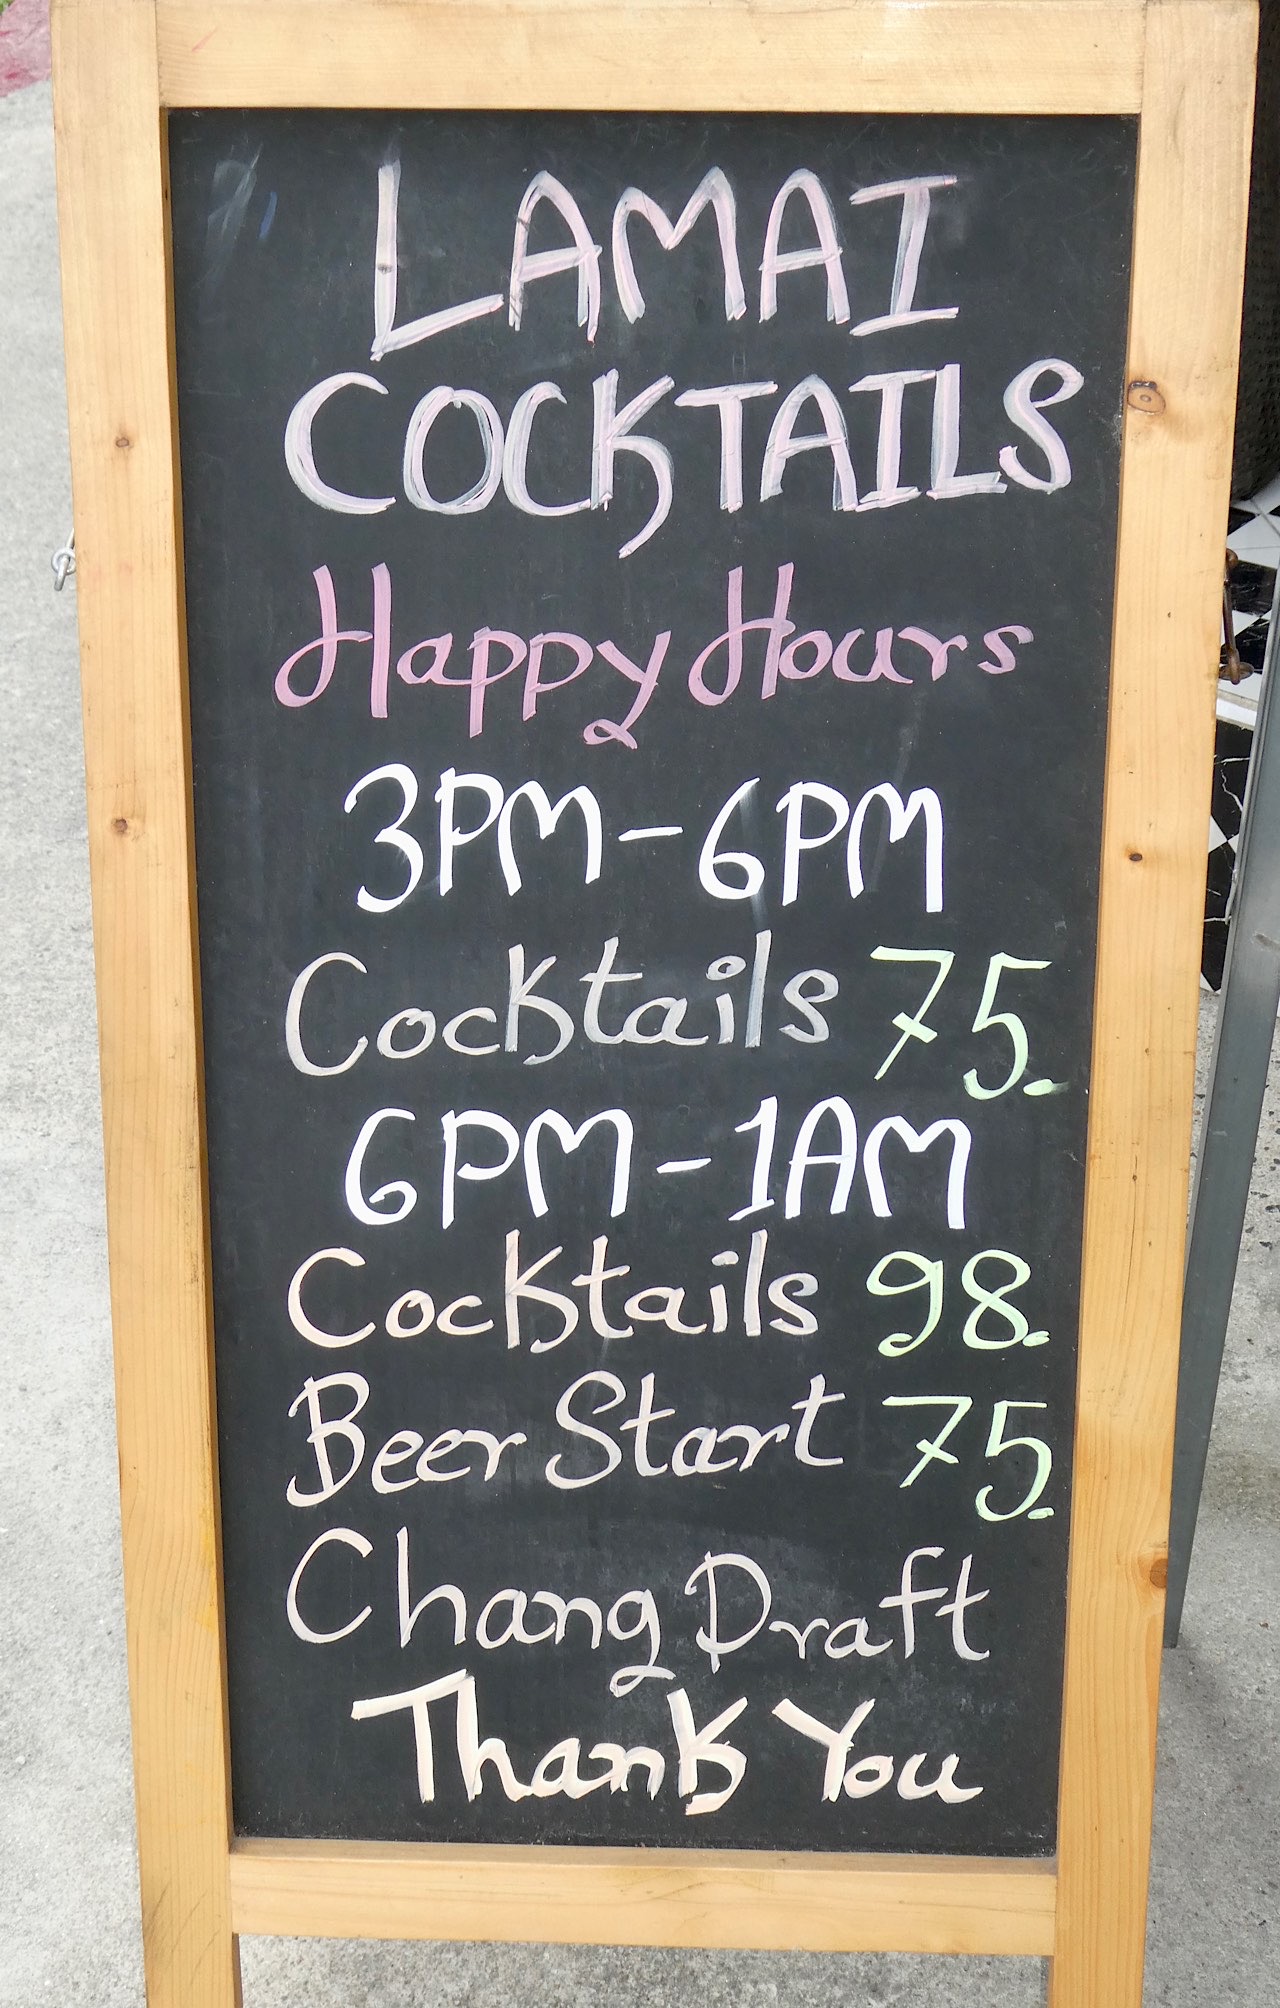 LAMAI
COCKTAILS
Happy Hours
3PM-6PM
Cocktails 75.
6PM-1AM
Cocktails 98.
Beer Start 75.
Chang Draft
Thank You